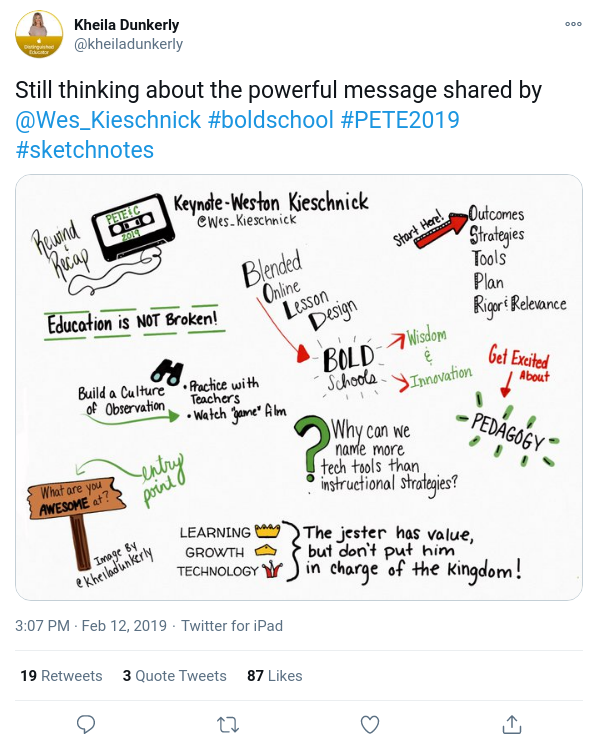 Kheila Dunkerly
@kheiladunkerly
Distinguished
Educator
Still thinking about the powerful message shared by
@Wes_Kieschnick #boldschool #PETE2019
#sketchnotes
Rewind
&
Recap
PETE&C
2019
Keynote-Weston Kieschnick
@Wes_Kieschnick
Start Here!
Outcomes
Strategies
Tools
Plan
Rigor & Relevance
Blended
Online
Lesson
Design
Education is NOT Broken!
BOLD
Schools
Wisdom
&
Innovation
Get Excited
About
PEDAGOGY
Build a Culture
of Observation
• Practice with
Teachers
• Watch "game" film
? Why can we
name more
tech tools than
instructional strategies?
entry
point
What are you
AWESOME at?
Image By
@kheiladunkerly
LEARNING
GROWTH
TECHNOLOGY
The jester has value,
but don't put him
in charge of the kingdom!
3:07 PM · Feb 12, 2019 · Twitter for iPad
19 Retweets 3 Quote Tweets 87 Likes